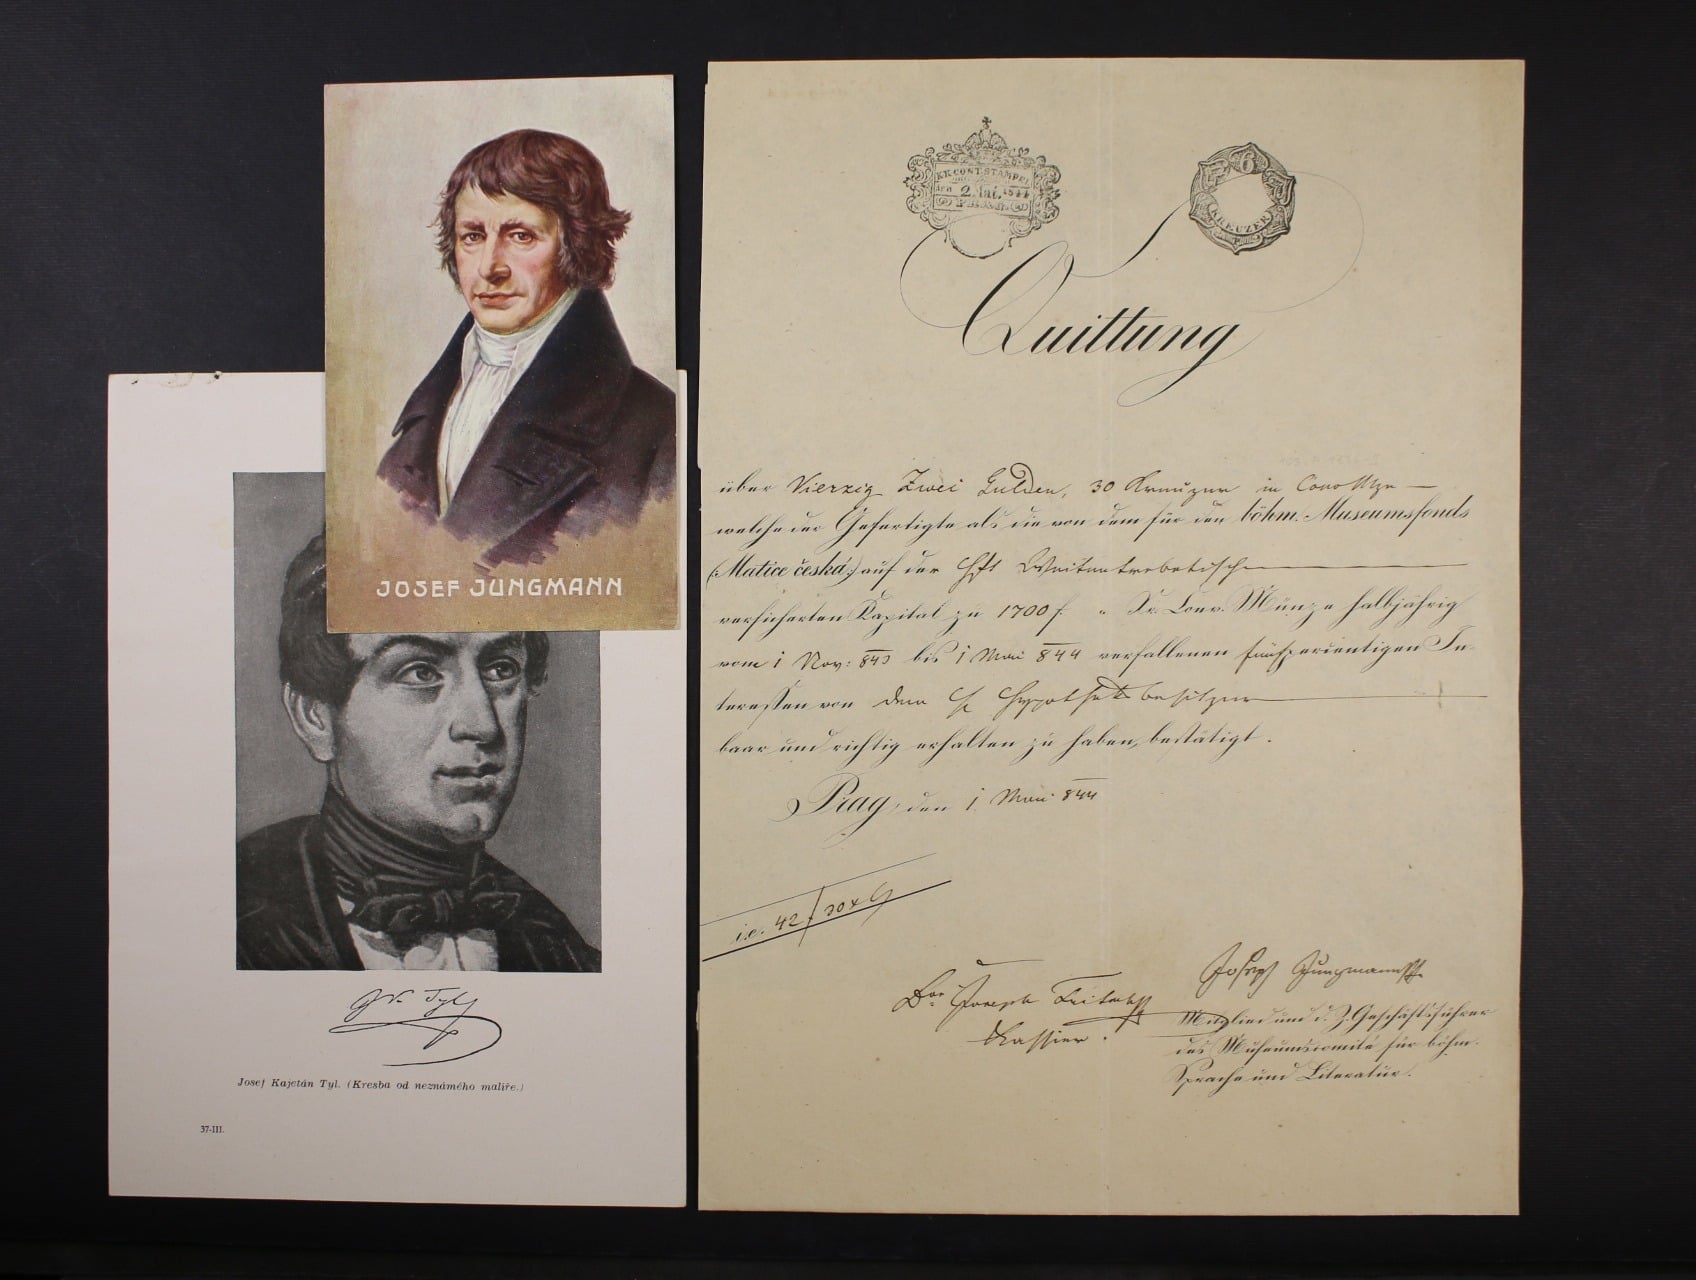 JOSEF JUNGMANN
Josef Kajetán Tyl. (Kresba od neznámého malíře.)
37-III.
K.K. CONT. STAMPEL
den 2. Jai. 1844
PRAG
6
KREUZER
Quittung
über Vierzig Zwei Gulden, 30 Kreuzer in Conv Mze
welche der Gefertigte als die von dem für den böhm. Museumsfonds
(Matice česká:) auf der
versicherten Kapital zu 1700 f. Münze halbjährig
vom 1 Nov: 843 bis 1 Mai 844 verfallenen In-
teressen von dem Hypothekbesitzer
baar und richtig erhalten zu haben, bestätigt.
Prag, den 1. Mai 844
i.e. 42 f 30 x
Joseph Jungmann
Dor. Joseph
Kassier.
Mitglied und d. Z. Geschäftsführer
des Museumscomité für böhm.
Sprache und Literatur.